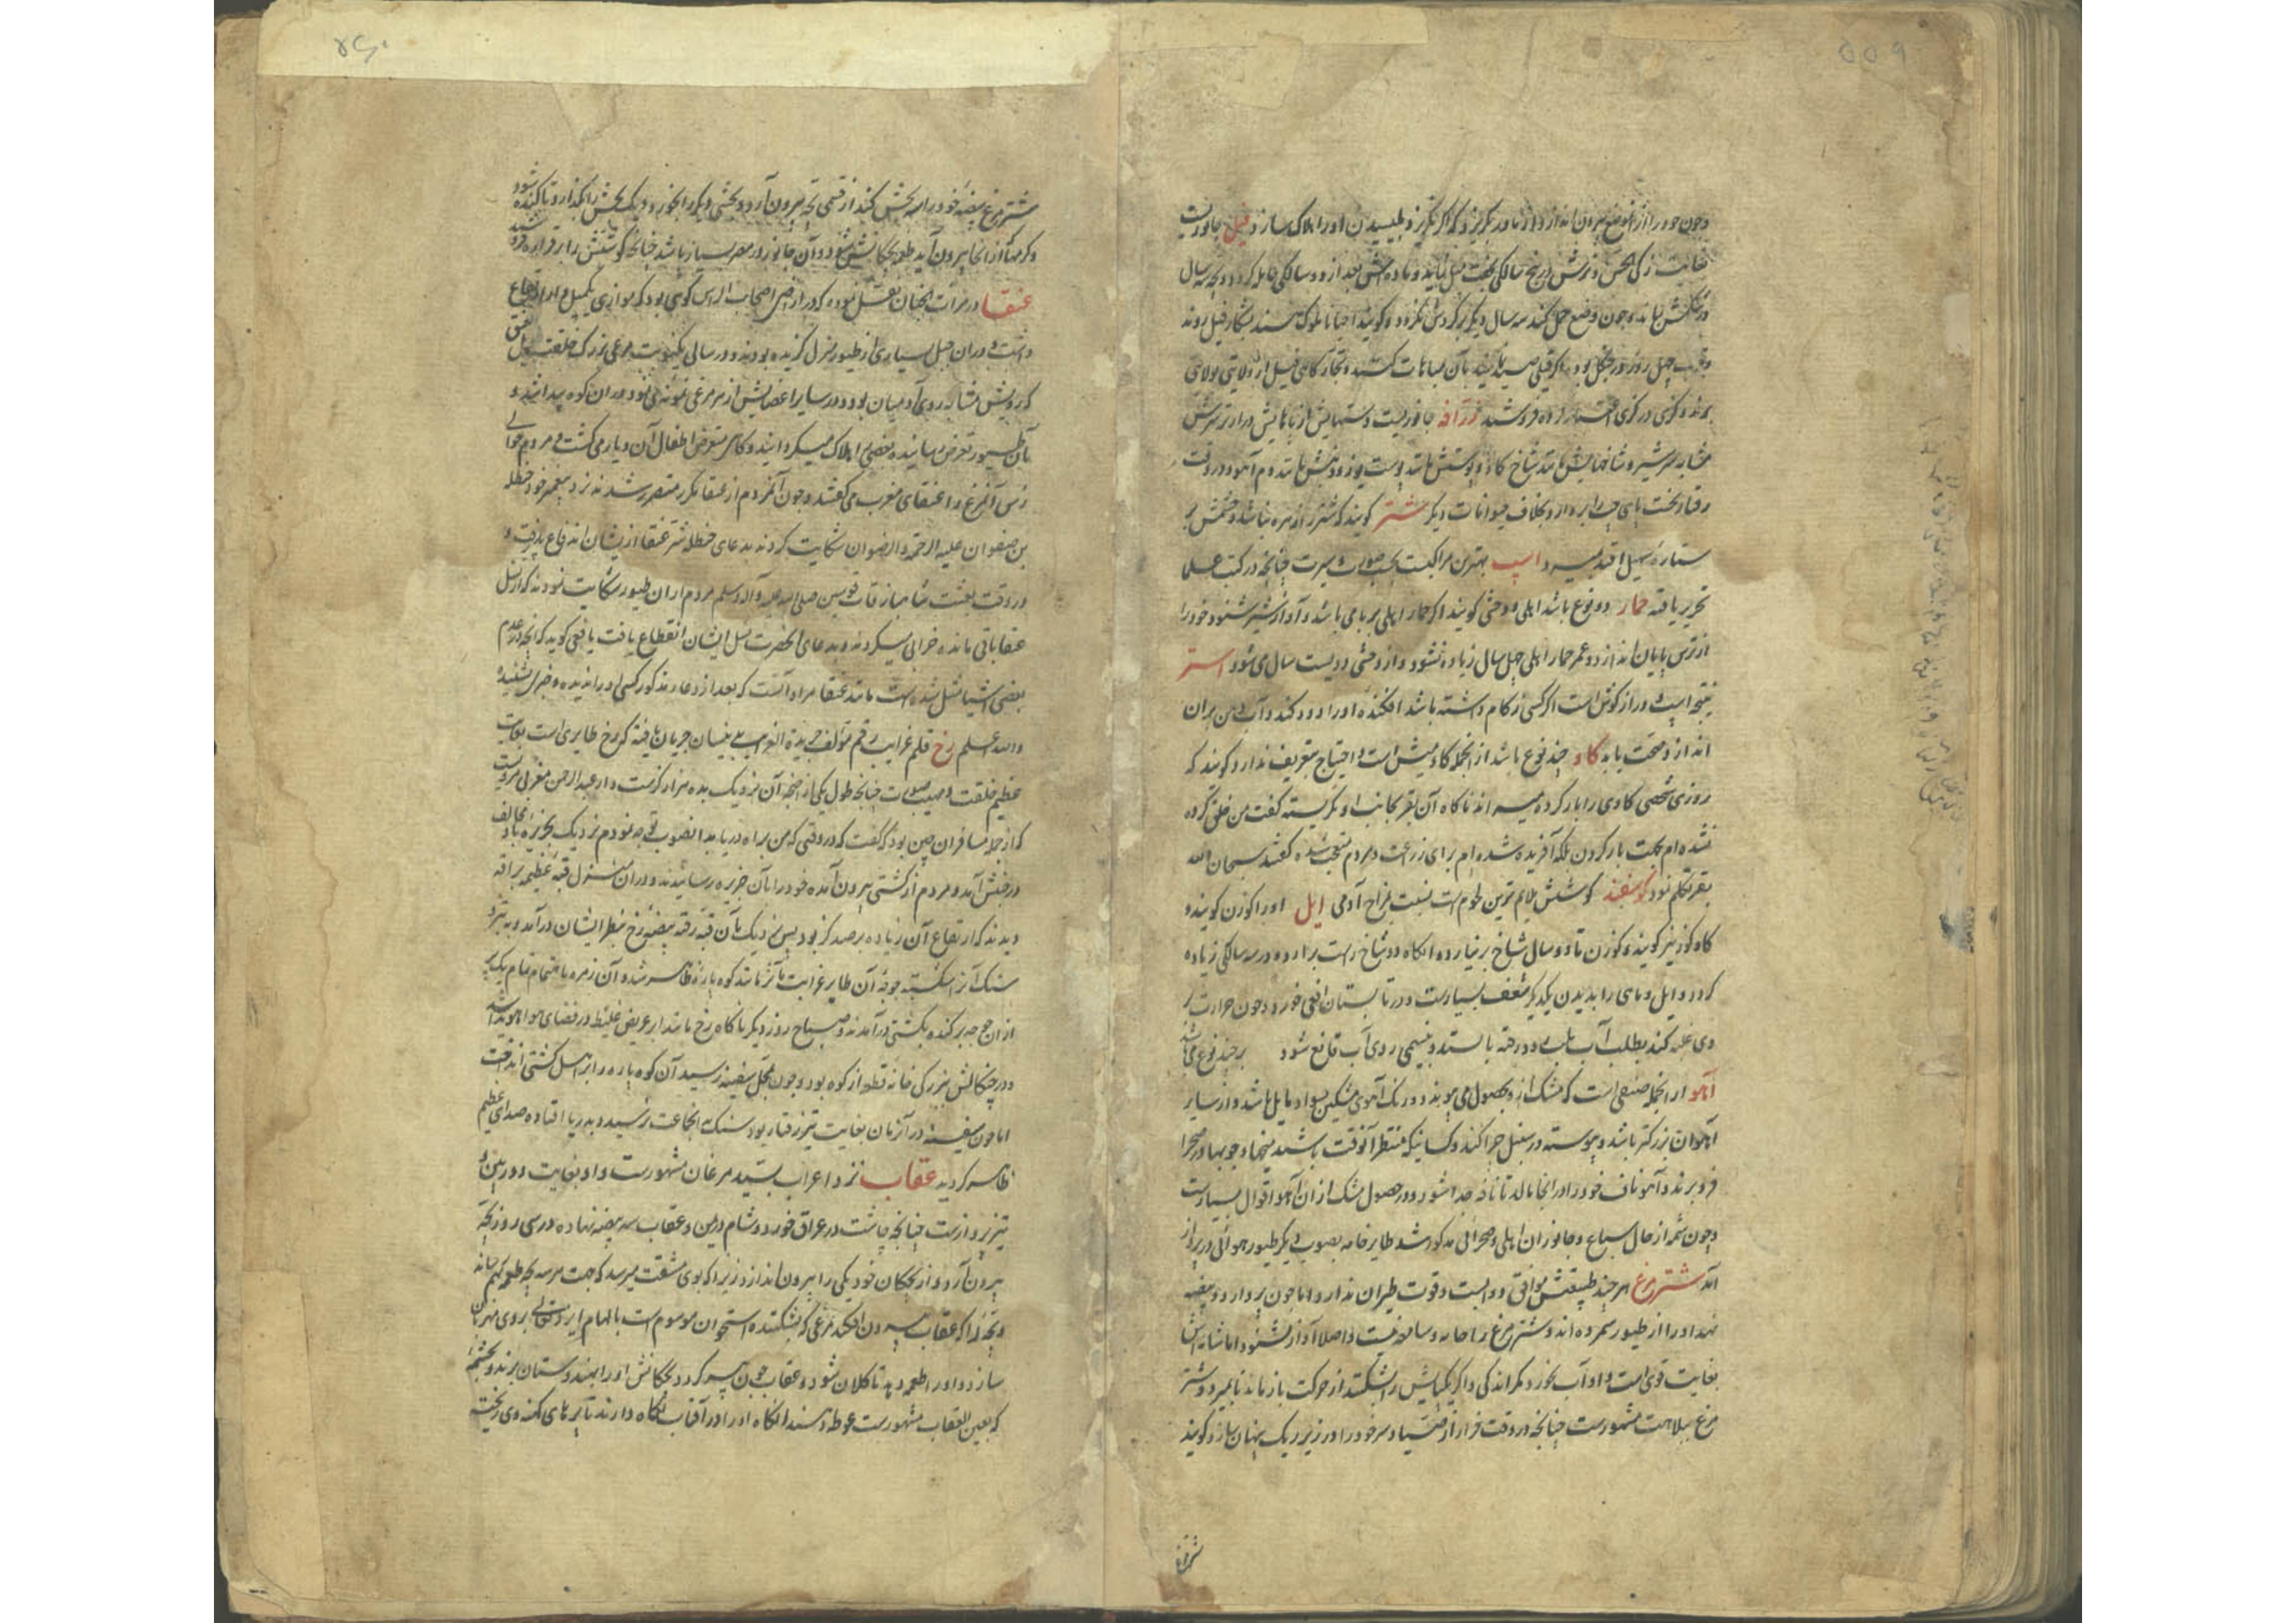 ۵۵۹
و چون خود را از آن موضع بیرون اندازد از مادر بگریزد که اگر نگریزد بلیسیدن او را هلاک سازد فیل جانوریست
بغایت زیرک و نرش در پنج سالگی بجفت میل نماید و ماده‌اش بعد از دو سالگی حامله گردد و بچه سه سال
در شکمش بماند و چون وضع حمل کند سه سال دیگر نر گردش نگردد و گویند احیانا ملوک هند بشکار فیل روند
و قریب چهل روز در جنگل بوده اگر فیلی صید نمایند بآن مباهات کنند و تجار گاهی فیل از ولایتی بولایتی
برند و گزی در گزی اعتبار نموده فروشند زرافه جانوریست دستهایش از پایهایش درازتر سرش
مشابه سر شتر و شاخهایش مانند شاخ گاو و پوستش مانند پوست یوز و دمش مانند دم آهو در وقت
رفتار نخست پای چپ را بردارد بخلاف حیوانات دیگر شتر گویند که شتر را زهره نباشد و چشمش بر
ستاره سهیل افتد بمیرد اسپ بهترین مراکبست بحسب صورت و سیرت چنانچه در کتب علما
تحریر یافته حمار دو نوع باشد اهلی و وحشی گویند اگر حمار اهلی بر بامی باشد و آواز شیر شنود خود را
از ترس پایان اندازد و عمر حمار اهلی چهل سال زیاده نشود و از وحشی دویست سال می شود استر
نتیجه اسپ و دراز گوش است اگر کسی زکام داشته باشد افکنده او را دود کند و آب دهن بران
اندازد صحت یابد گاو چند نوع باشد از آنجمله گاومیش است و احتیاج بتعریف ندارد گویند که
روزی شخصی گاوی را بار کرده میراند ناگاه آن بقر بجانب او نگریسته گفت من خلق کرده
نشده‌ام بجهت بار کردن بلکه آفریده شده‌ام برای زراعت و مردم متعجب شده گفتند سبحان الله
بقر تکلم نمود گوسفند گوشتش ملایم ترین لحوم است نسبت بمزاج آدمی ایل او را گوزن گویند و
گاو کوز نیز گویند و گوزن تا دو سال شاخ برنیارد و انگاه دو شاخ راست برارد و در سه سالگی زیاده
گردد و ایل و ماهی را بدیدن یکدیگر شعف بسیارست و در تابستان افعی خورد و چون حرارت بر
وی غلبه کند بطلب آب بهر طرف رفته بایستد و بنسیمی روی آب قانع شود بر چند نوع می باشد
آهو از آنجمله صنفی است که مشک ازو بحصول می پیوندد و رنگ آهوی مشکین بسواد مایل باشد و از سایر
آهوان بزرگتر باشد و پیوسته در سنبل چرا کند و کسانیکه منتظر آنوقت باشند میخها و چوبها در صحرا
فرو برند و آهو ناف خود را در انجا مالد تا نافه جدا شود و در حصول مشک از ان آهو اقوال بسیارست
و چون شمه از حال سباع و جانوران اهلی و صحرائی مذکور شد طایر خامه بصوب دیگر طیور هوائی در پرواز
آمد شتر مرغ هر چند طبیعتش موافق دوابست و قوت طیران ندارد اما چون پر دارد و بیضه
نهد او را از طیور شمرده اند و شتر مرغ را حاسه سامعه نیست و اصلا آواز نشنود اما شامه‌اش
بغایت قوی است و او آب نخورد مگر اندکی و اگر یکپایش را بشکنند از حرکت باز ماند تا بمیرد و شتر
مرغ ببلاهت مشهورست چنانچه در وقت فرار از صیاد سر خود را در زیر ریک پنهان سازد گویند
شتر مرغ
۵۶۰
شتر مرغ بیضه خود را سه بخش کند از قسمی بچه بیرون آرد و بخشی دیگر را بخورد و یک بخش را بگذارد تا گنده شود
و کرمها از انجا بیرون آید طعمه بچگانش شود و آن جانور در مصر بسیار باشد چنانچه گوشتش را بر قناره فروشند
عنقا در مرات الجنان نقل نموده که در اراضی اصحاب الرس کوهی بود که موازی یکمیل ارتفاع
داشت و دران جبل بسیاری از طیور منزل گزیده بودند و در سالی یکنوبت مرغی بزرگ خلقت طویل عنق
که رویش مشابه روی آدمیان بود و در سایر اعضایش از هر مرغی نمونه می نمود دران کوه پیدا شد و
بآن طیور تعرض رسانیده بعضی را هلاک میگردانید و گاهی متعرض اطفال آن دیار می گشت و مردم حوالی
رس آنمرغ را عنقای مغرب می گفتند و چون آنمردم از عنقا مکرر متضرر شدند نزد پیغمبر خود حنظله
بن صفوان علیه الرحمة و الرضوان شکایت کردند بدعای حنظله شر عنقا از یشان اندفاع پذیرفت و
در وقت بعثت شاهباز قاب قوسین صلی الله علیه و آله و سلم مردم ازان طیور شکایت نمودند که از نسل
عنقا باقی مانده خرابی میکردند و بدعای آنحضرت نسل ایشان انقطاع یافت یافعی گوید که آنچه در عدم
بعضی اشیا مثل شده است مانند عنقا مراد آنست که بعد از دعاء مذکور کسی او را ندیده و خبری نشنیده
والله اعلم رخ قلم غرایب رقم مؤلف جریدة العجایب بنیسان جریان یافته که رخ طایری است بغایت
عظیم خلقت و مهیب صورت چنانچه طول یکی از اجنحه آن نزدیک بده هزار گزست و از عبدالرحمن مغربی مرویست
که از جمله مسافران چین بود که گفت که در وقتی که من براه دریا بدانصوب توجه نمودم نزدیک بجزیره باد مخالف
در جنبش آمد و مردم از کشتی بیرون آمده خود را بآن جزیره رسانیدند و دران منزل قبه عظیمه براقه
دیدند که ارتفاع آن زیاده بر صد گز بود پس نزدیک بآن قبه رفته بیضه رخ بنظر ایشان درآمد و به تبر و
سنگ آنرا شکسته جوجه آن طایر غرابت مآثر مانند کوه پاره ظاهر شد و آن زمره باهتمام تمام یک پر
از ان جوجه بر کنده بکشتی درآمدند و صباح روز دیگر ناگاه رخ مانند ابر عریض غلیظ در فضای هوا هویدا شد
و در چنگالش ببزرگی خانه قطعه از کوه بود و چون بمحل سفینه رسید آن کوه پاره را بر اهل کشتی انداخت
اما چون سفینه در آنزمان بغایت تیز رفتار بود سنگ بآنجماعت نرسید و بدریا افتاده صدای عظیم
ظاهر گردید عقاب نزد اعراب بسید مرغان مشهورست و او بغایت دوربین و
تیز پروازست چنانچه چاشت در عراق خورد و شام در یمن و عقاب سه بیضه نهاده در سی روز بچه
بیرون آرد و از بچگان خود یکی را بیرون اندازد زیرا که بوی مشقت میرسد که جهت هر سه بچه طعمه بهم رساند
و بچه را که عقاب بیرون افکند مرغی که بشکننده استخوان موسوم است بالهام ایزد تعالی بروی مهربان
سازد و او را طعمه دهد تا کلان شود و عقاب چون پیر گردد بچگانش او را بهندوستان برند و بچشمه
که بعین العقاب مشهورست غوطه دهند انگاه او را در آفتاب نگاه دارند تا پرهای کهنه وی ریخته